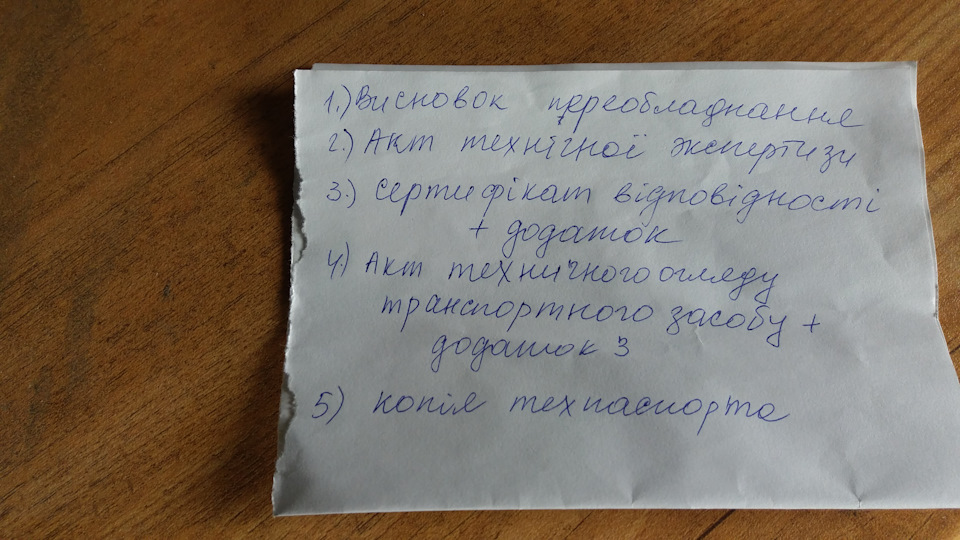 1.) Висновок переобладнання
2.) Акт технічної экспертизи
3.) Сертифікат відповідності
+ додаток
4) Акт техничного огляду
транспортного засобу +
додаток 3
5) копія техпаспорта